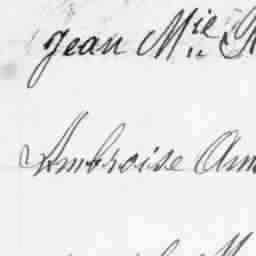 Jean M.ie
Ambroise Am